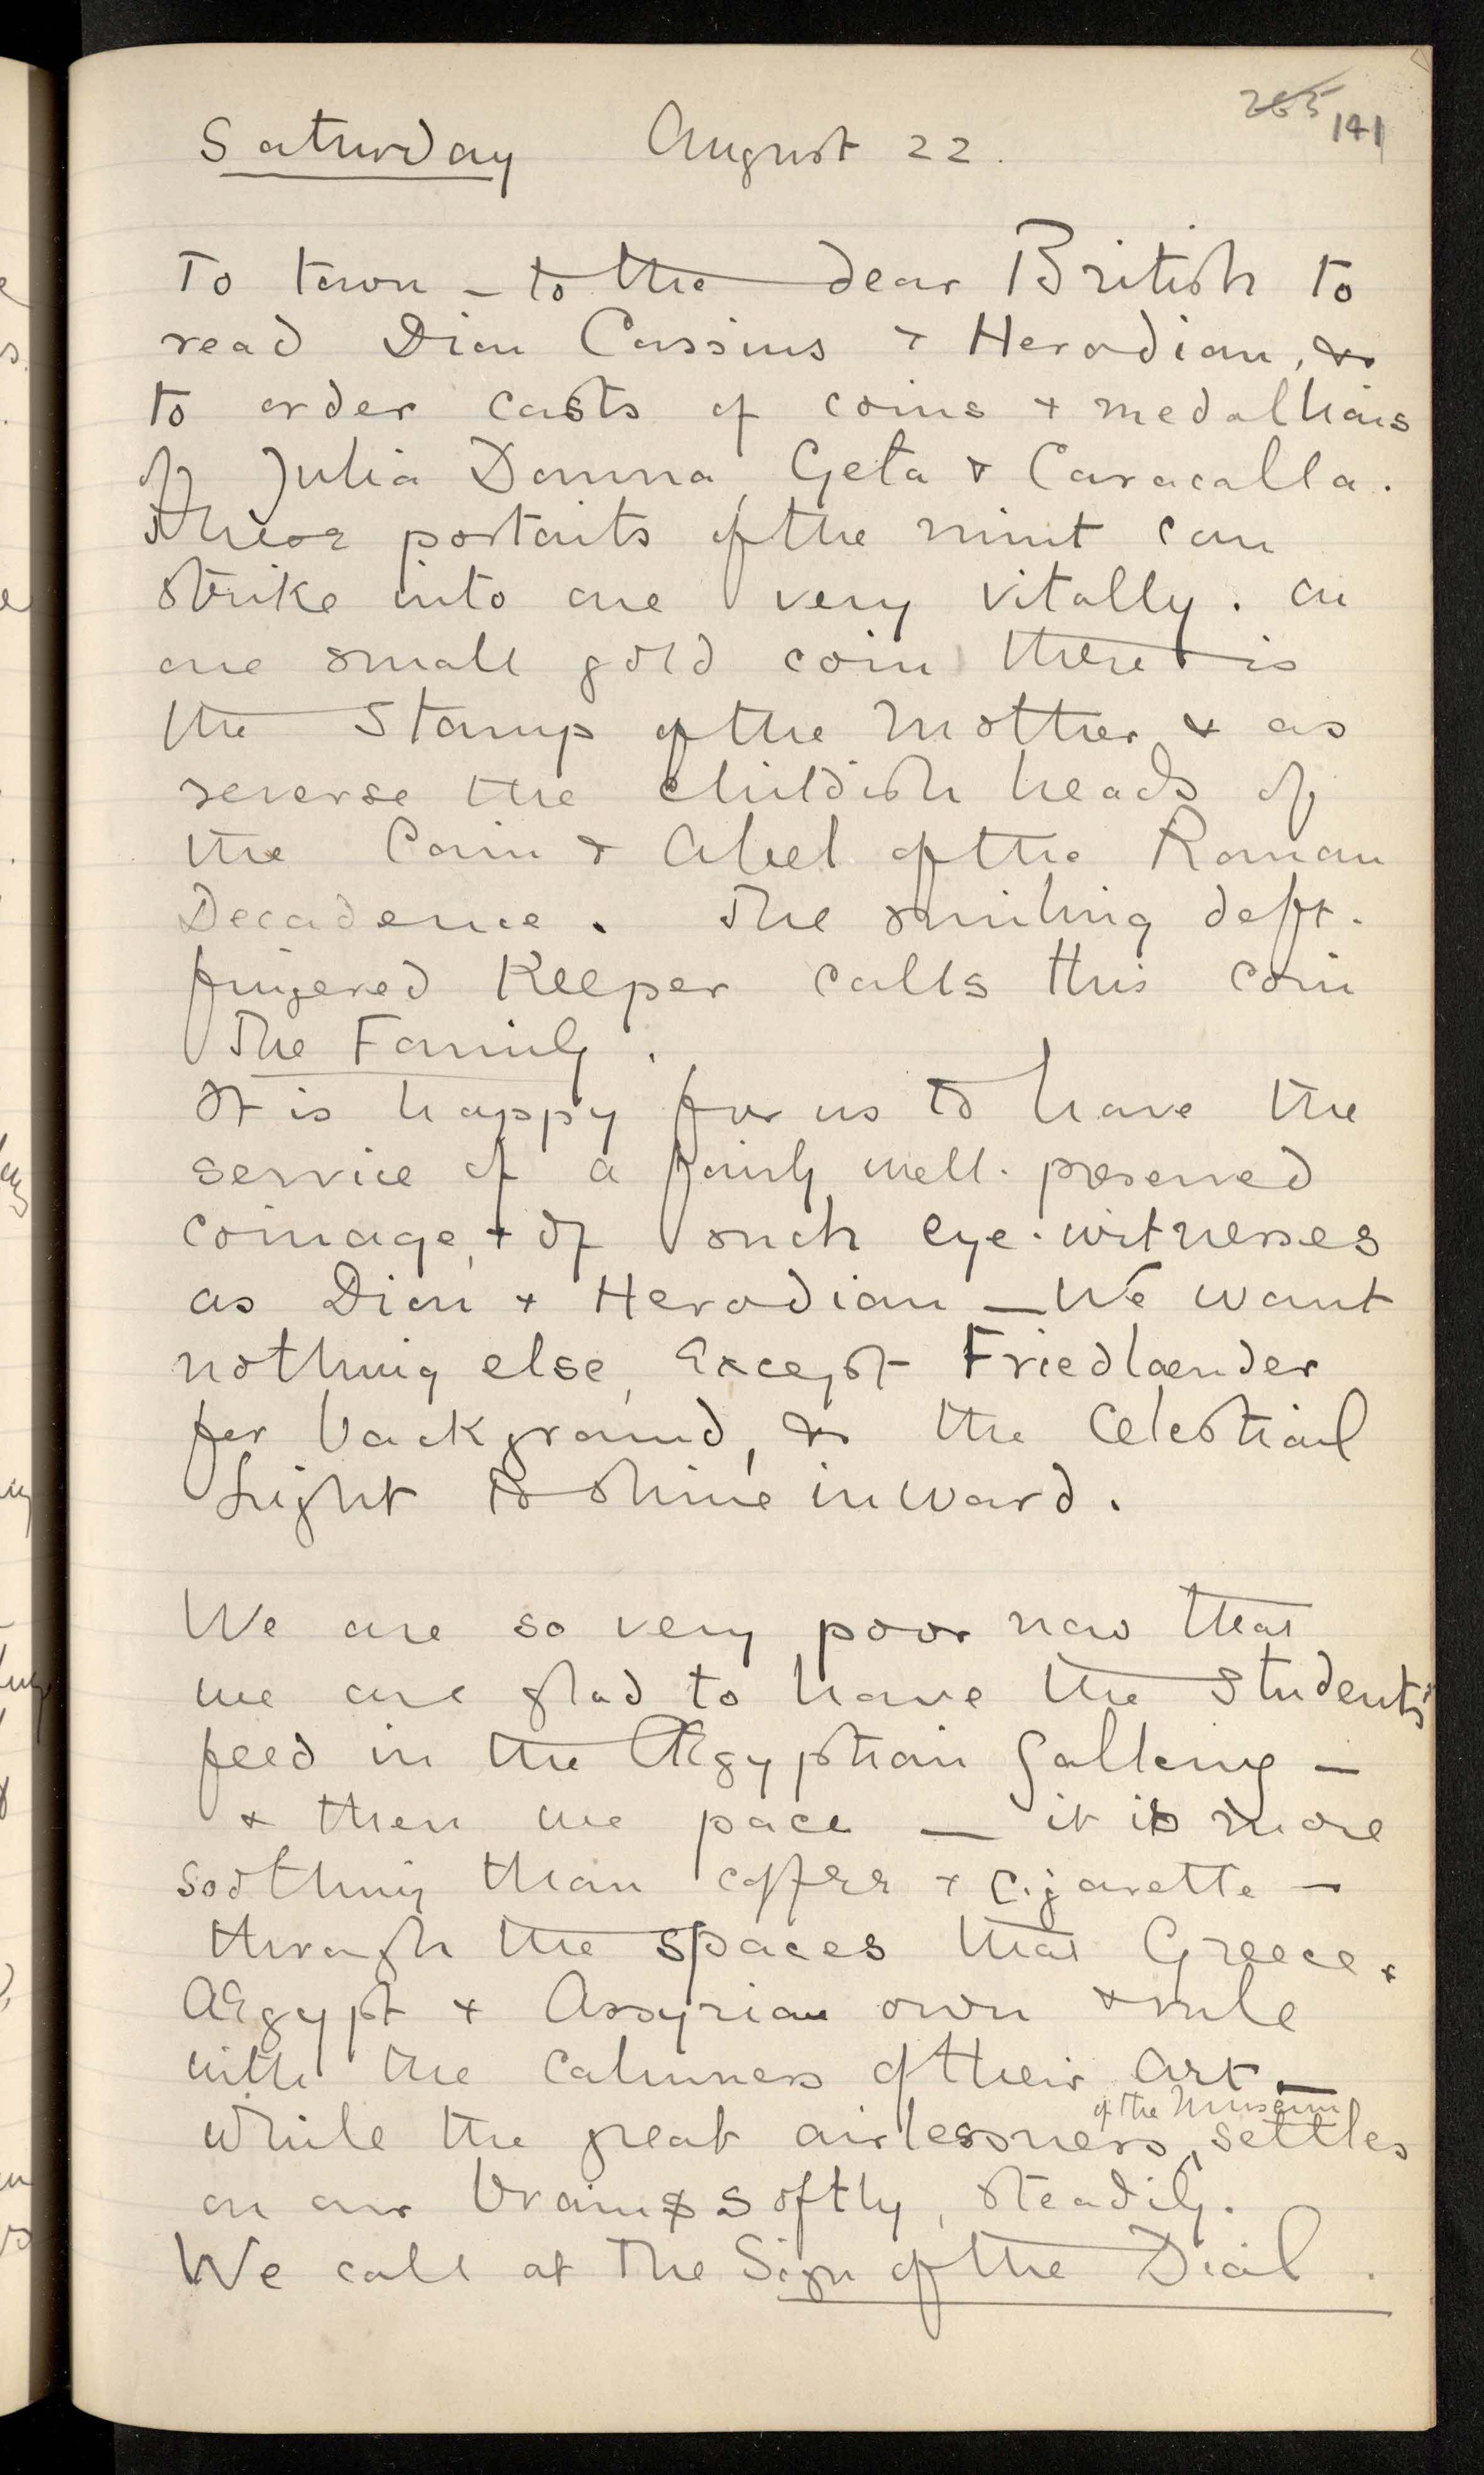 265 141
Saturday August 22.
To town – to the dear British to
read Dion Cassius & Herodian, &
to order casts of coins & medallions
of Julia Domna, Geta & Caracalla.
These portaits of the mint can
strike into one very vitally. On
one small gold coin there is
the Stamp of the Mother & as
reverse the childish heads of
the Cain & Abel of the Roman
Decadence. The smiling deft-
fingered Keeper calls this coin
The Family.
It is happy for us to have the
service of a fairly well-preserved
coinage, & of such eye-witnesses
as Dion & Herodian – We want
nothing else, except Friedlaender
for background, & the Celestial
Light to shine inward.
We are so very poor now that
we are glad to have the Students'
feed in the Ægyptian Gallery –
& then we pace – it is more
soothing than coffee & cigarette –
through the spaces that Greece &
Ægypt & Assyria own & rule
with the calmness of their art –
of the Museum
while the great airlessness settles
on our brains softly, steadily.
We call at The Sign of the Dial.